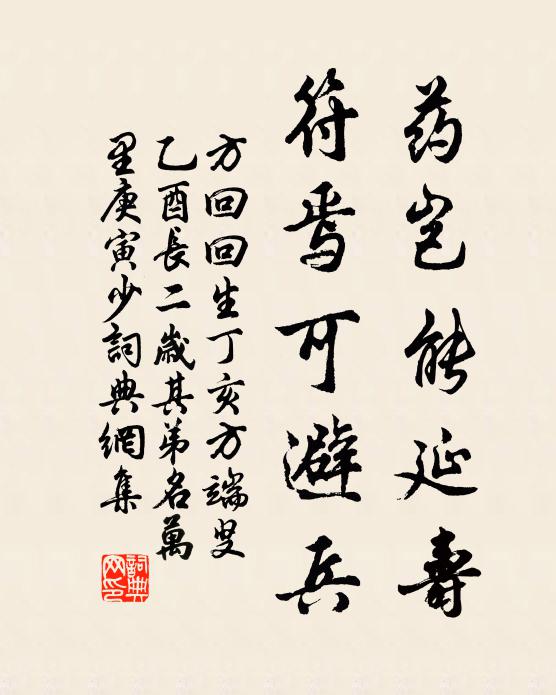 药岂能延寿
符焉可避兵
方回回生丁亥方端叟
乙酉長二歲其弟名萬
里庚寅少詞典網集
詞典网印